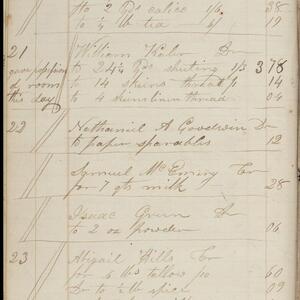 to 2 Ds calico 1/2. 38
to 1/2 lb tea 19
21 William Dr
to 24 1/4 Ds shirting 1/3 3 78
gave possession
of room
this day
to 14 skeins thread 14
to 4 skeins linen thread 04
22 Nathaniel A Goodwin Dr
to paper sparables 12
Samuel McEnny Cr
for 7 qts milk 28
Isaac Green Dr
to 2 oz powder 06
23 Abigail Hills Cr
for 6 lbs tallow 60
Dr to 1/2 lb spice 09